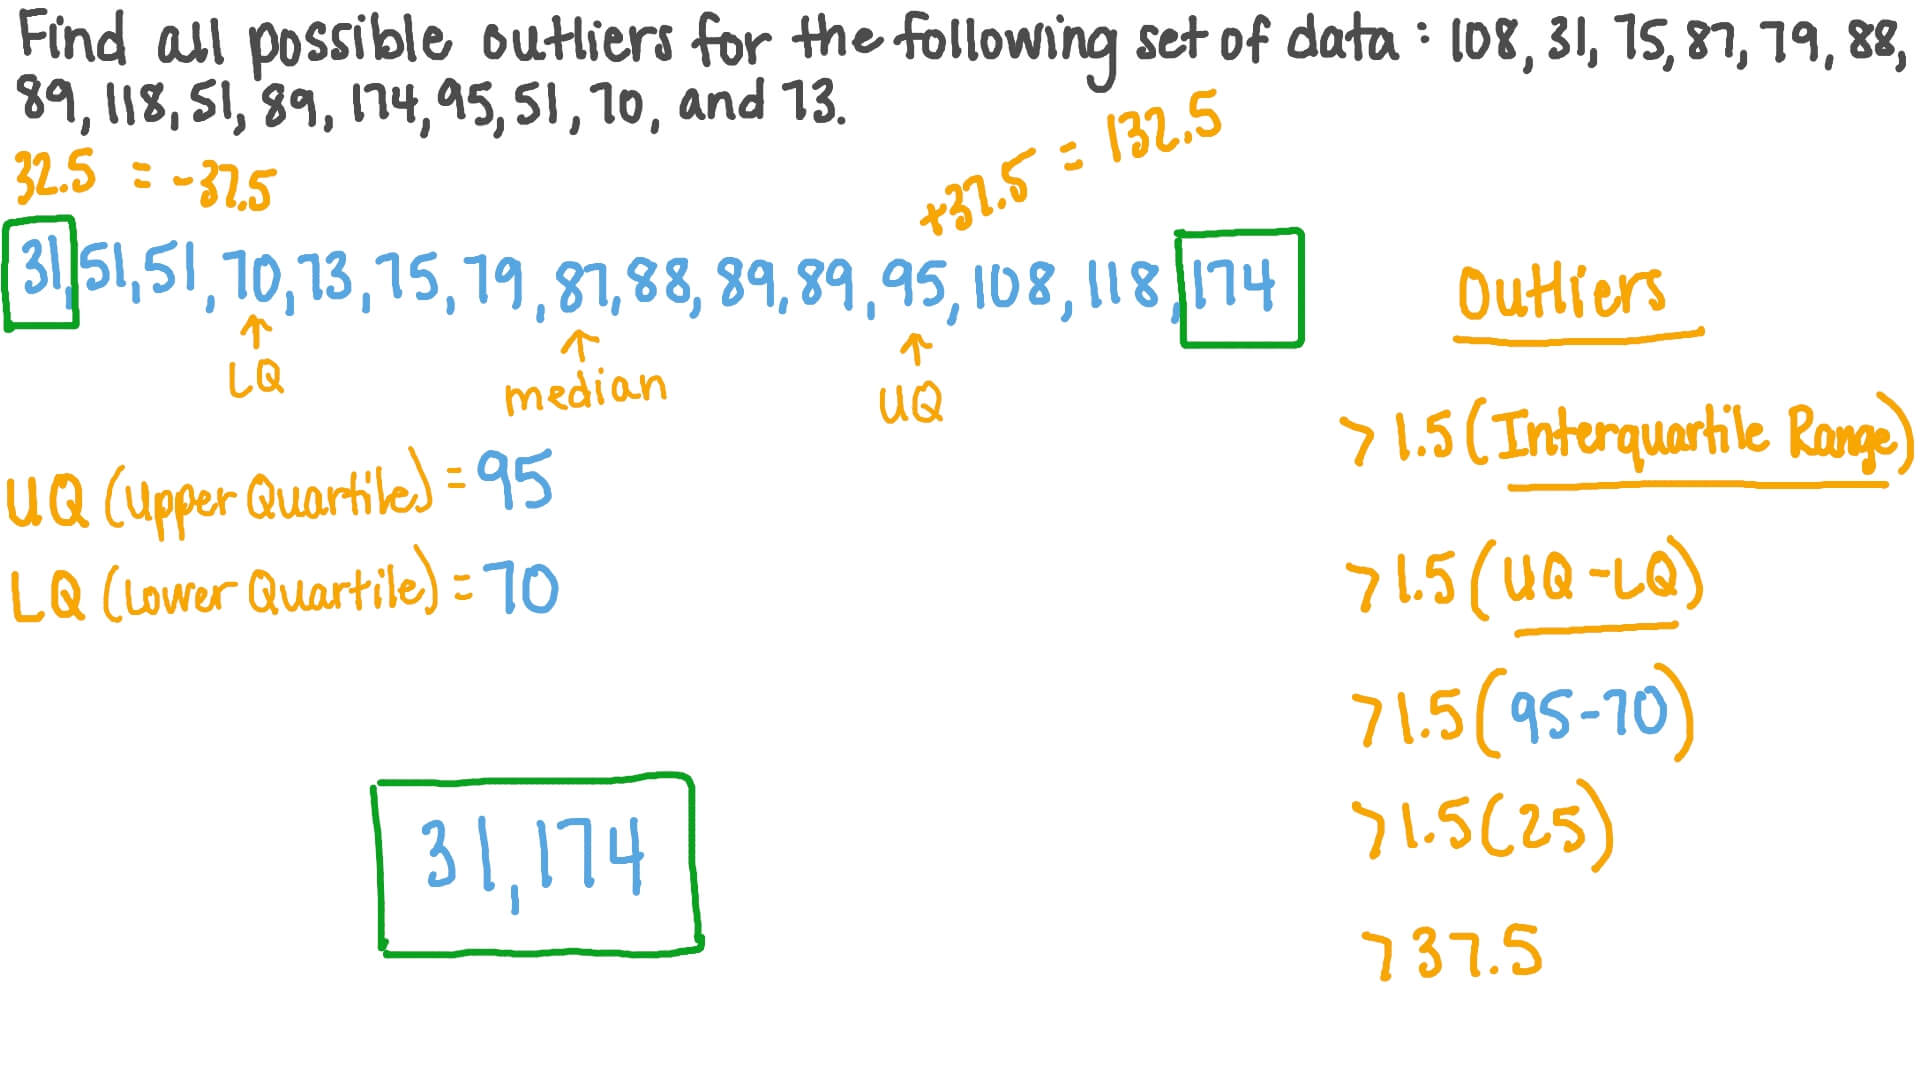 Find all possible outliers for the following set of data : 108, 31, 75, 87, 79, 88,
89, 118, 51, 89, 174, 95, 51, 70, and 73.
32.5 = -37.5
+37.5 = 132.5
31, 51, 51, 70, 73, 75, 79, 87, 88, 89, 89, 95, 108, 118, 174
↑ ↑ ↑
LQ median UQ
UQ (Upper Quartile) = 95
LQ (Lower Quartile) = 70
31, 174
Outliers
> 1.5 (Interquartile Range)
> 1.5 (UQ - LQ)
> 1.5 (95 - 70)
> 1.5 (25)
> 37.5